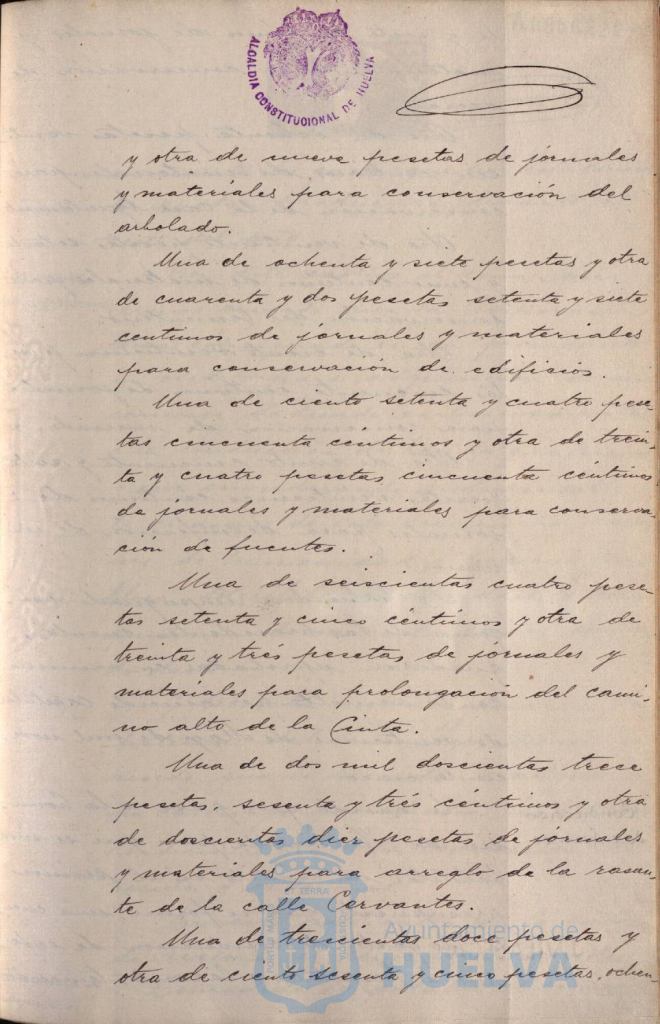 ALCALDIA CONSTITUCIONAL DE HUELVA
y otra de nueve pesetas de jornales
y materiales para conservación del
arbolado.
Una de ochenta y siete pesetas y otra
de cuarenta y dos pesetas setenta y siete
centimos de jornales y materiales
para conservación de edificios.
Una de ciento setenta y cuatro pese-
tas cincuenta céntimos y otra de trein-
ta y cuatro pesetas cincuenta céntimos
de jornales y materiales para conserva-
ción de fuentes.
Una de seiscientas cuatro pese-
tas setenta y cinco céntimos y otra de
treinta y trés pesetas de jornales y
materiales para prolongación del cami-
no alto de la Cinta.
Una de dos mil doscientas trece
pesetas, sesenta y trés céntimos y otra
de doscientas diez pesetas de jornales
y materiales para arreglo de la rasan-
te de la calle Cervantes.
Una de trescientas doce pesetas y
otra de ciento sesenta y cinco pesetas, ochen-
PORTUS MARIS ET TERRA CUSTODIA
Ayuntamiento de
HUELVA